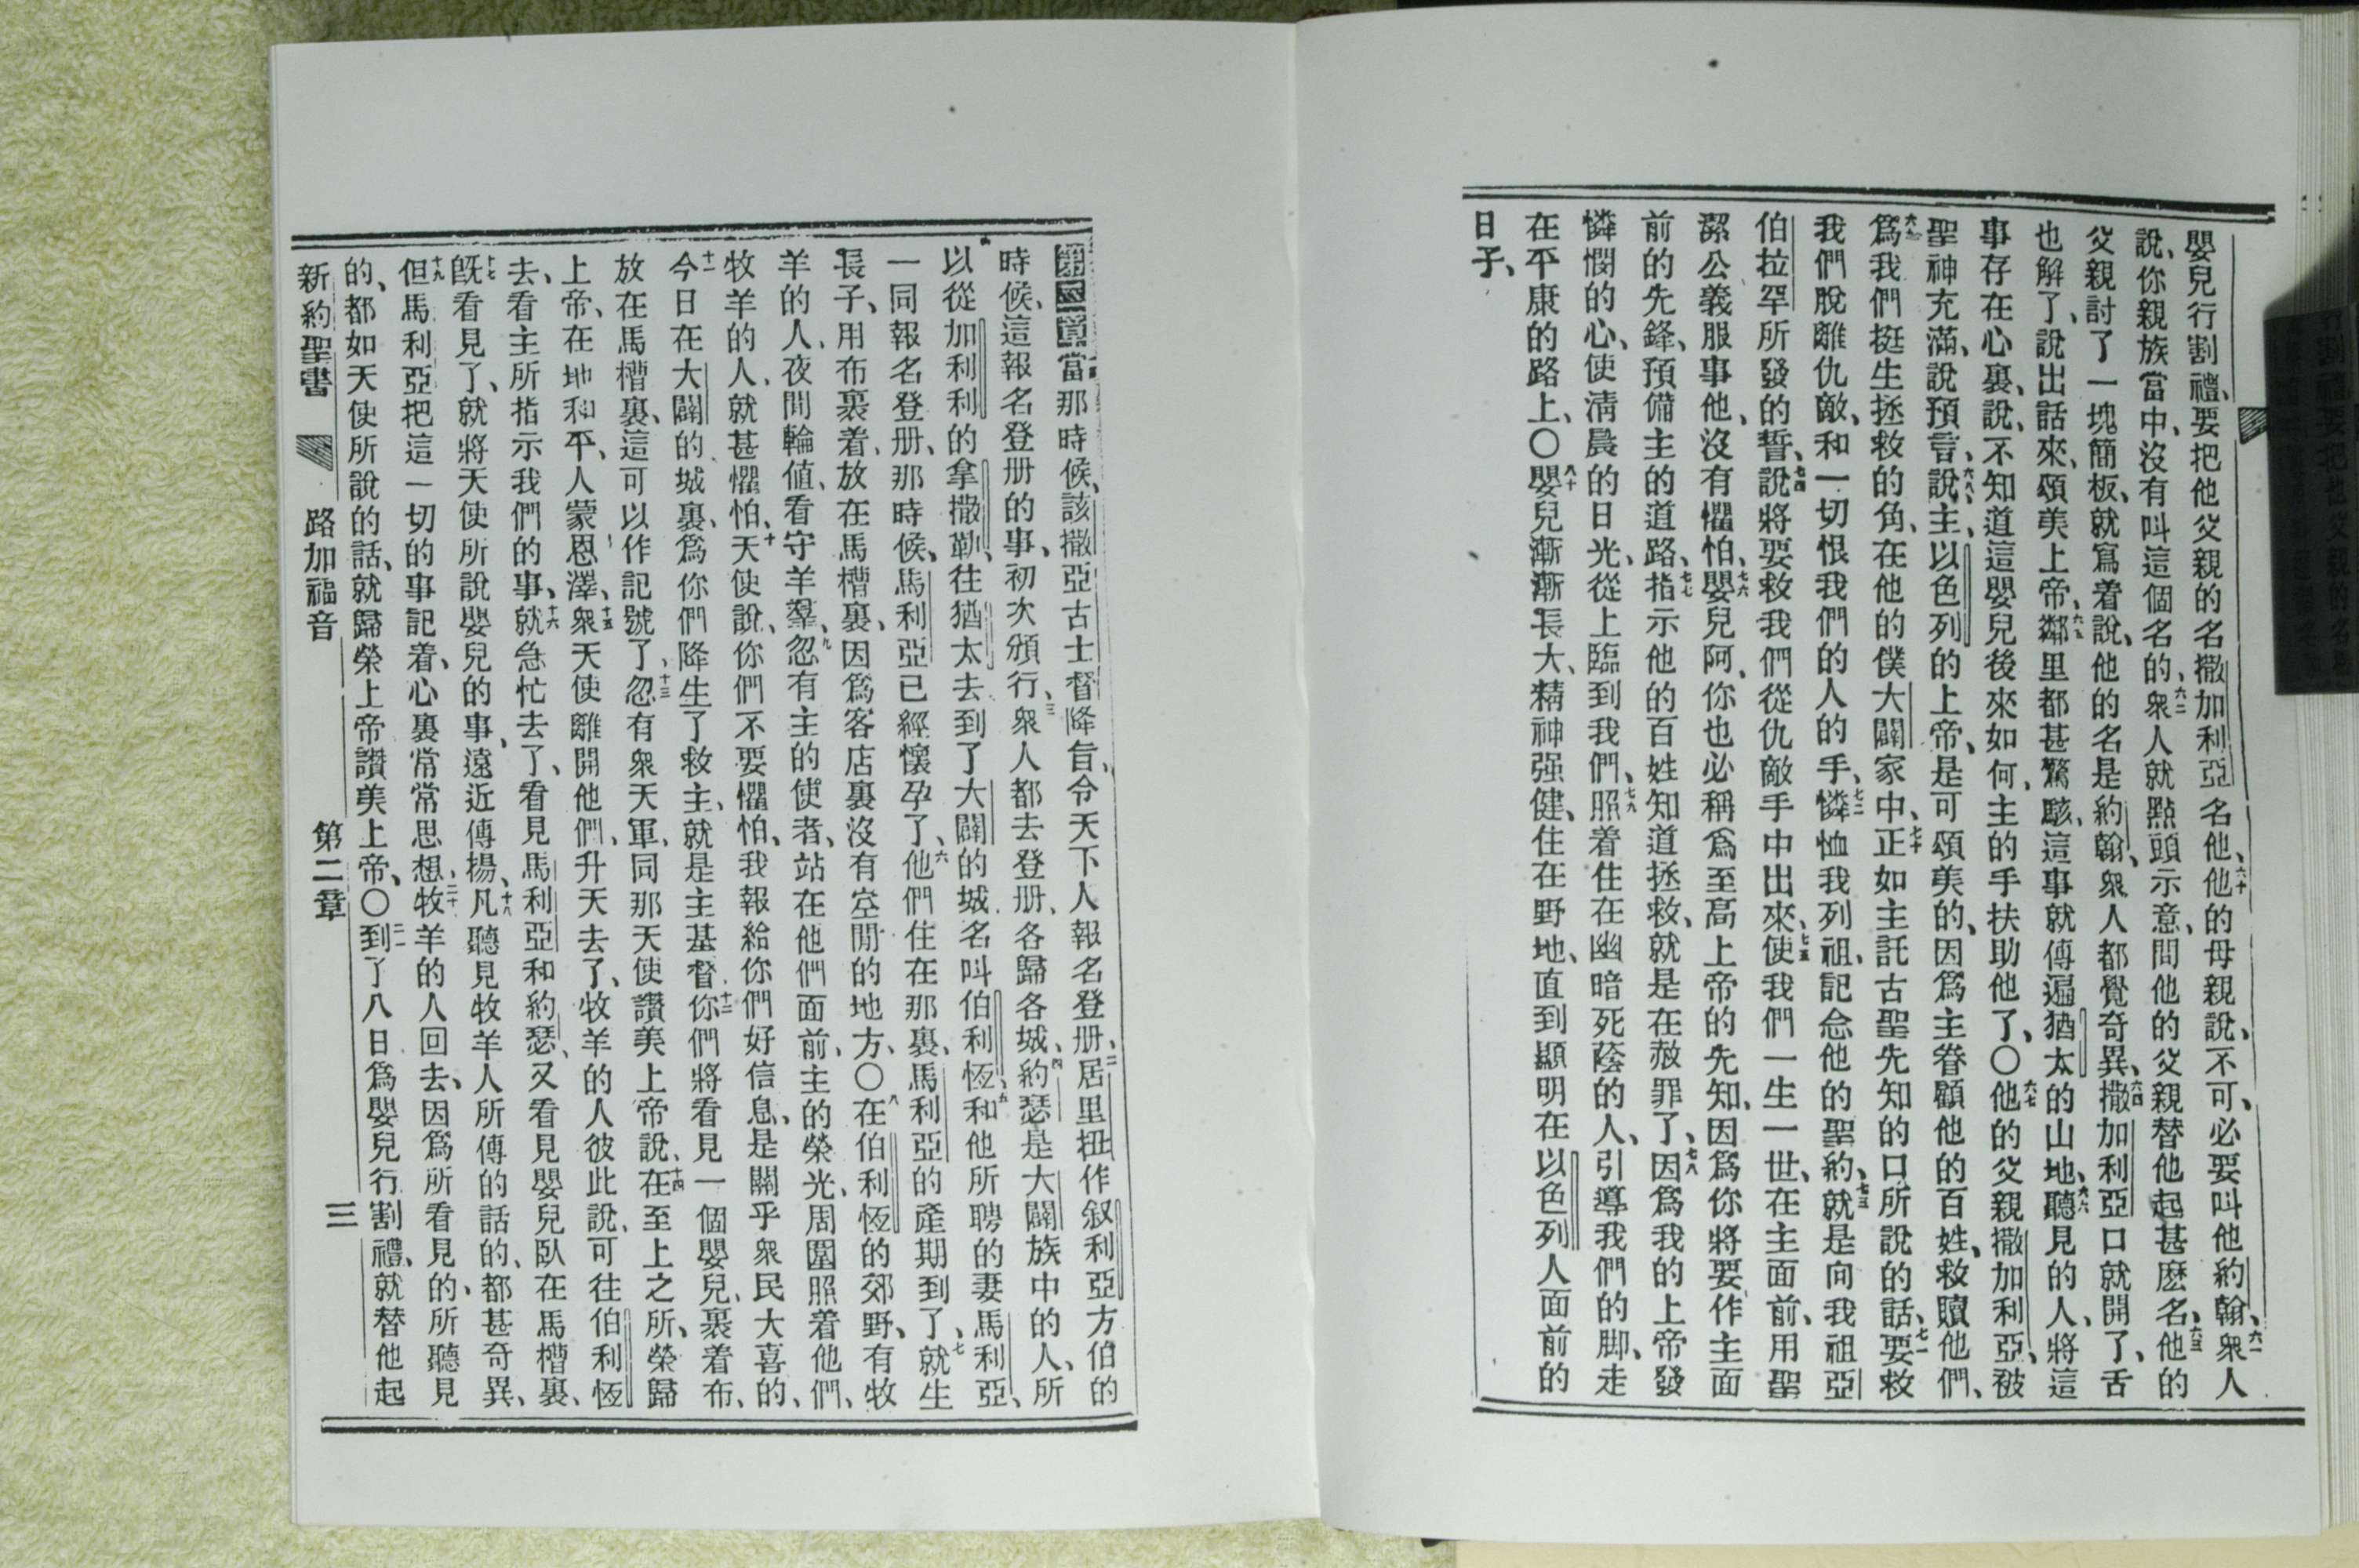 嬰兒行割禮、要把他父親的名撒加利亞名他、六十他的母親說、不可、必要叫他約翰、六一衆人
說、你親族當中、沒有叫這個名的、六二衆人就點頭示意、問他的父親替他起甚麽名、六三他的
父親討了一塊簡板、就寫着說、他的名是約翰、衆人都覺奇異、六四撒加利亞口就開了、舌
也解了、說出話來、頌美上帝、六五鄰里都甚驚駭、這事就傳遍猶太的山地、六六聽見的人、將這
事存在心裏、說、不知道這嬰兒後來如何、主的手扶助他了、〇六七他的父親撒加利亞、被
聖神充滿、說預言、說、六八主、以色列的上帝、是可頌美的、因爲主眷顧他的百姓、救贖他們、
六九爲我們挺生拯救的角、在他的僕大闢家中、七十正如主託古聖先知的口所說的話、七一要救
我們脫離仇敵、和一切恨我們的人的手、七二憐恤我列祖、記念他的聖約、七三就是向我祖亞
伯拉罕所發的誓、七四說將要救我們從仇敵手中出來、七五使我們一生一世、在主面前、用聖
潔公義服事他、沒有懼怕、七六嬰兒阿、你也必稱爲至高上帝的先知、因爲你將要作主面
前的先鋒、預備主的道路、七七指示他的百姓知道拯救、就是在赦罪了、七八因爲我的上帝發
憐憫的心、使淸晨的日光、從上臨到我們、七九照着住在幽暗死蔭的人、引導我們的脚、走
在平康的路上、〇八十嬰兒漸漸長大、精神强健、住在野地、直到顯明在以色列人面前的
日子、
第二章當那時候、該撒亞古士督降旨、令天下人報名登册、二居里扭作叙利亞方伯的
時候、這報名登册的事、初次頒行、三衆人都去登册、各歸各城、四約瑟是大闢族中的人、所
以從加利利的拿撒勒、往猶太去到了大闢的城、名叫伯利恆、五和他所聘的妻馬利亞、
一同報名登册、那時候、馬利亞已經懷孕了、六他們住在那裏、馬利亞的產期到了、七就生
長子、用布裹着、放在馬槽裏、因爲客店裏沒有空閒的地方、〇八在伯利恆的郊野、有牧
羊的人、夜間輪值、看守羊羣、九忽有主的使者、站在他們面前、主的榮光、周圍照着他們、
牧羊的人、就甚懼怕、十天使說、你們不要懼怕、我報給你們好信息、是關乎衆民大喜的、
十一今日在大闢的城裏、爲你們降生了救主、就是主基督、十二你們將看見一個嬰兒、裹着布、
放在馬槽裏、這可以作記號了、十三忽有衆天軍、同那天使讚美上帝說、十四在至上之所、榮歸
上帝、在地和平、人蒙恩澤、十五衆天使離開他們、升天去了、牧羊的人彼此說、可往伯利恆
去、看主所指示我們的事、十六就急忙去了、看見馬利亞和約瑟、又看見嬰兒臥在馬槽裏、
十七旣看見了、就將天使所說嬰兒的事、遠近傳揚、十八凡聽見牧羊人所傳的話的、都甚奇異、
十九但馬利亞把這一切的事記着、心裏常常思想、二十牧羊的人回去、因爲所看見的、所聽見
的、都如天使所說的話、就歸榮上帝讚美上帝、〇二一到了八日爲嬰兒行割禮、就替他起
新約聖書 路加福音 第二章 三